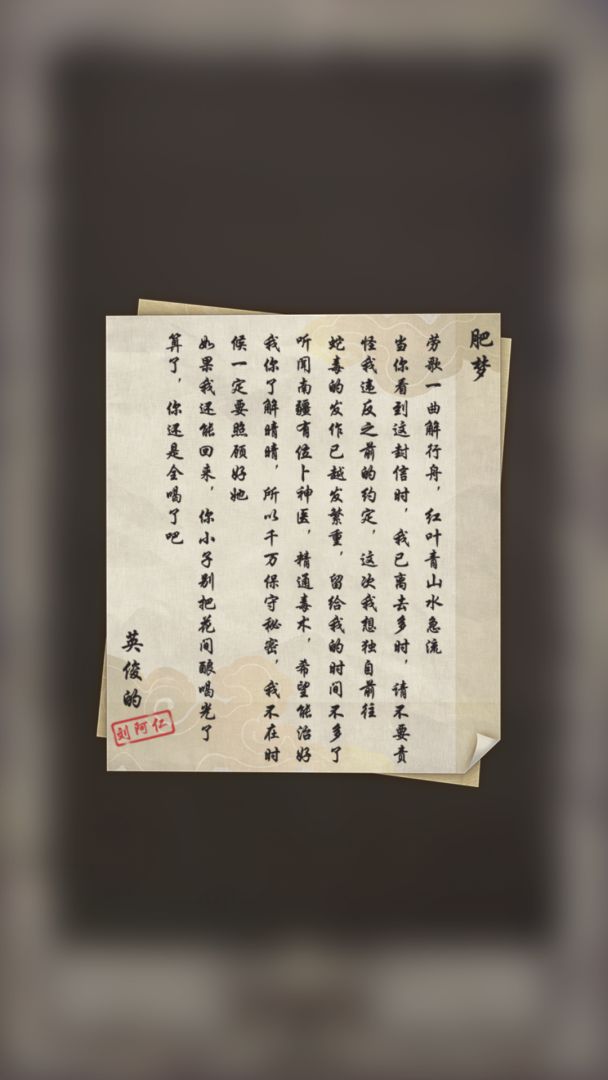 肥梦
劳歌一曲解行舟，红叶青山水急流
当你看到这封信时，我已离去多时，请不要责
怪我违反之前的约定，这次我想独自前往
蛇毒的发作已越发繁重，留给我的时间不多了
听闻南疆有位卜神医，精通毒术，希望能治好
我你了解晴晴，所以千万保守秘密，我不在时
候一定要照顾好她
如果我还能回来，你小子别把花间酿喝光了
算了，你还是全喝了吧
英俊的
刘阿仁